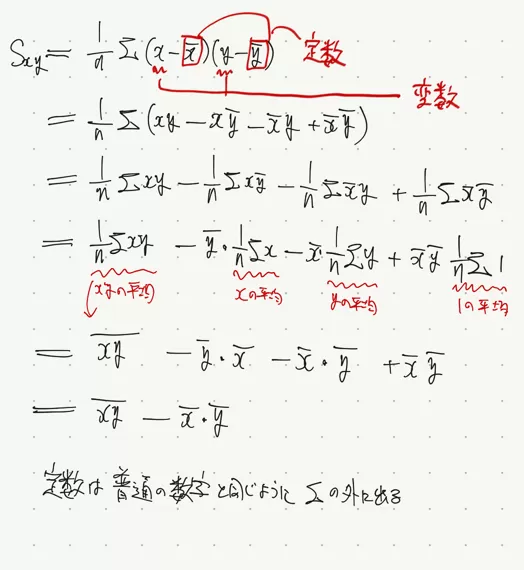 Sxy = 1/n Σ (x - x̄)(y - ȳ) 定数
変数
= 1/n Σ (xy - xȳ - x̄y + x̄ȳ)
= 1/n Σxy - 1/n Σxȳ - 1/n Σx̄y + 1/n Σx̄ȳ
= 1/n Σxy - ȳ・1/n Σx - x̄・1/n Σy + x̄ȳ 1/n Σ1
xyの平均 xの平均 yの平均 1の平均
= x̅y̅ - ȳ・x̄ - x̄・ȳ + x̄ȳ
= x̅y̅ - x̄・ȳ
定数は普通の数字と同じように Σの外に出る